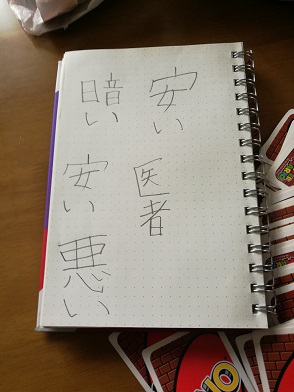 安い
医者
暗い
安い
悪い
UNO